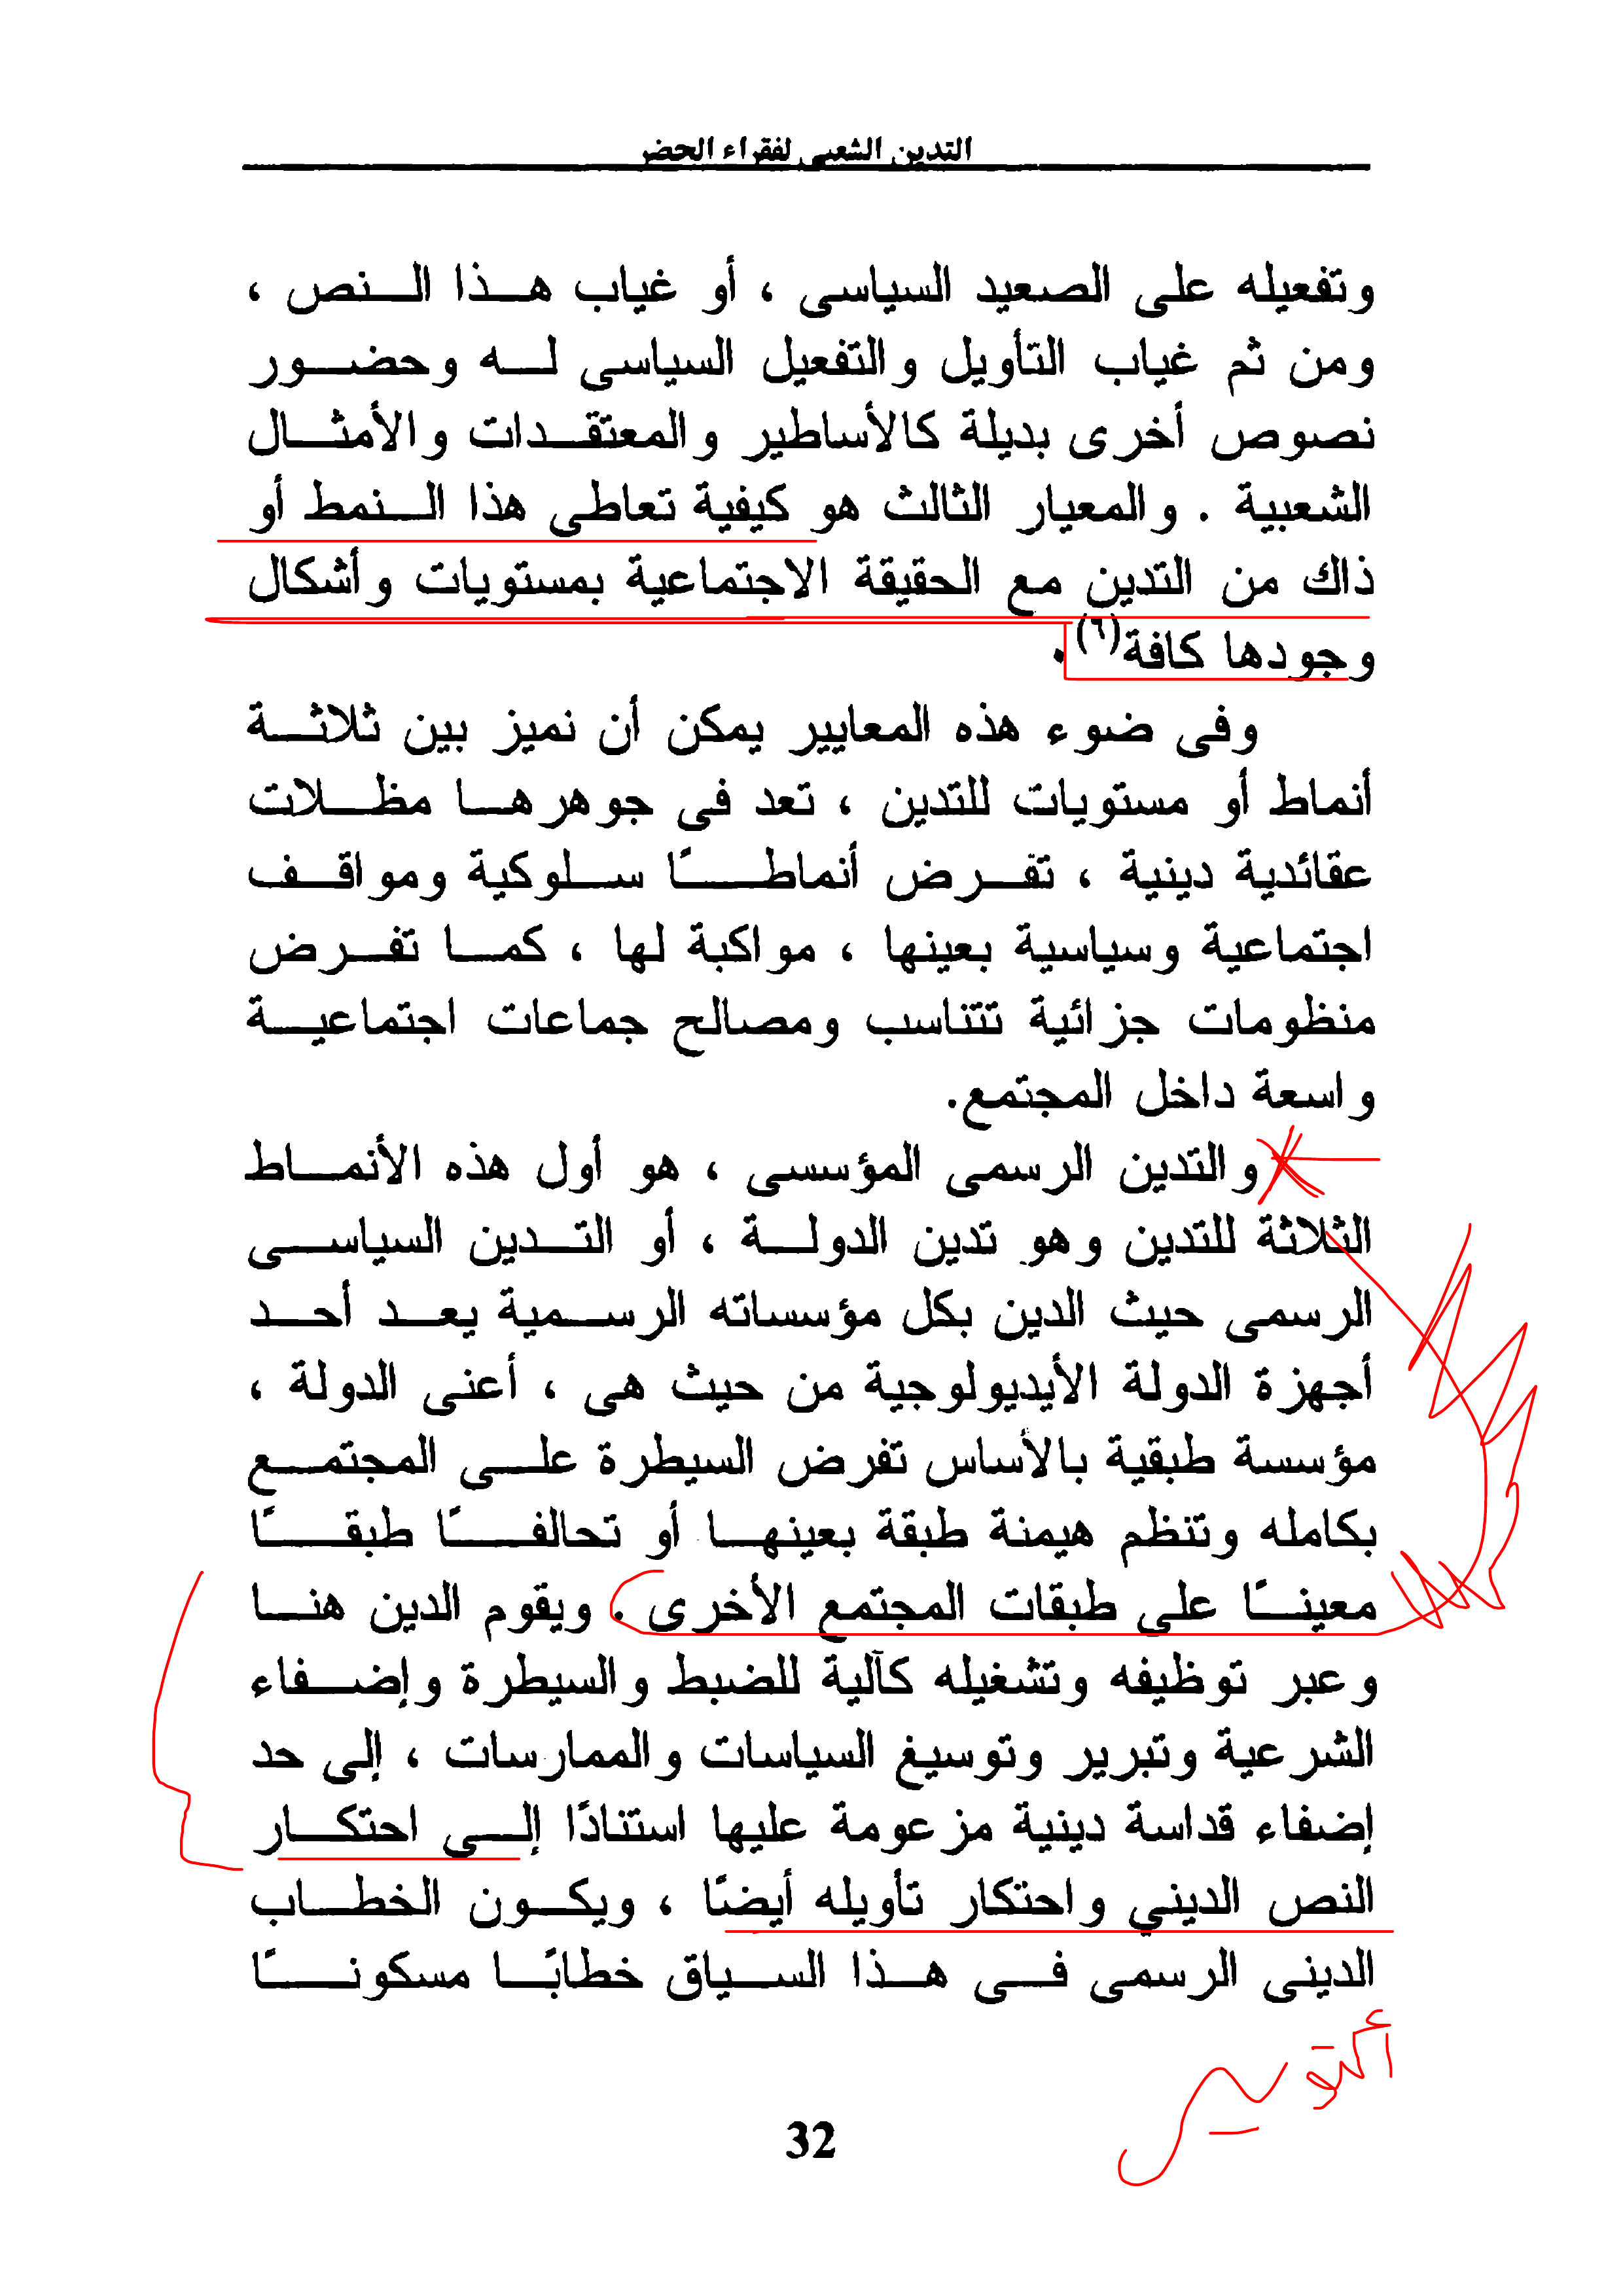 التدين الشعبى لفقراء الحضر
وتفعيله على الصعيد السياسى ، أو غياب هذا النص ،
ومن ثم غياب التأويل والتفعيل السياسى له وحضور
نصوص أخرى بديلة كالأساطير والمعتقدات والأمثال
الشعبية . والمعيار الثالث هو كيفية تعاطى هذا النمط أو
ذاك من التدين مع الحقيقة الاجتماعية بمستويات وأشكال
وجودها كافة(٦).
وفى ضوء هذه المعايير يمكن أن نميز بين ثلاثة
أنماط أو مستويات للتدين ، تعد فى جوهرها مظلات
عقائدية دينية ، تفرض أنماطًا سلوكية ومواقف
اجتماعية وسياسية بعينها ، مواكبة لها ، كما تفرض
منظومات جزائية تتناسب ومصالح جماعات اجتماعية
واسعة داخل المجتمع.
والتدين الرسمى المؤسسى ، هو أول هذه الأنماط
الثلاثة للتدين وهو تدين الدولة ، أو التدين السياسى
الرسمى حيث الدين بكل مؤسساته الرسمية يعد أحد
أجهزة الدولة الأيديولوجية من حيث هى ، أعنى الدولة ،
مؤسسة طبقية بالأساس تفرض السيطرة على المجتمع
بكامله وتنظم هيمنة طبقة بعينها أو تحالفًا طبقًا
معينًا على طبقات المجتمع الأخرى . ويقوم الدين هنا
وعبر توظيفه وتشغيله كآلية للضبط والسيطرة وإضفاء
الشرعية وتبرير وتوسيغ السياسات والممارسات ، إلى حد
إضفاء قداسة دينية مزعومة عليها استنادًا إلى احتكار
النص الديني واحتكار تأويله أيضًا ، ويكون الخطاب
الدينى الرسمى فى هذا السياق خطابًا مسكونًا
32